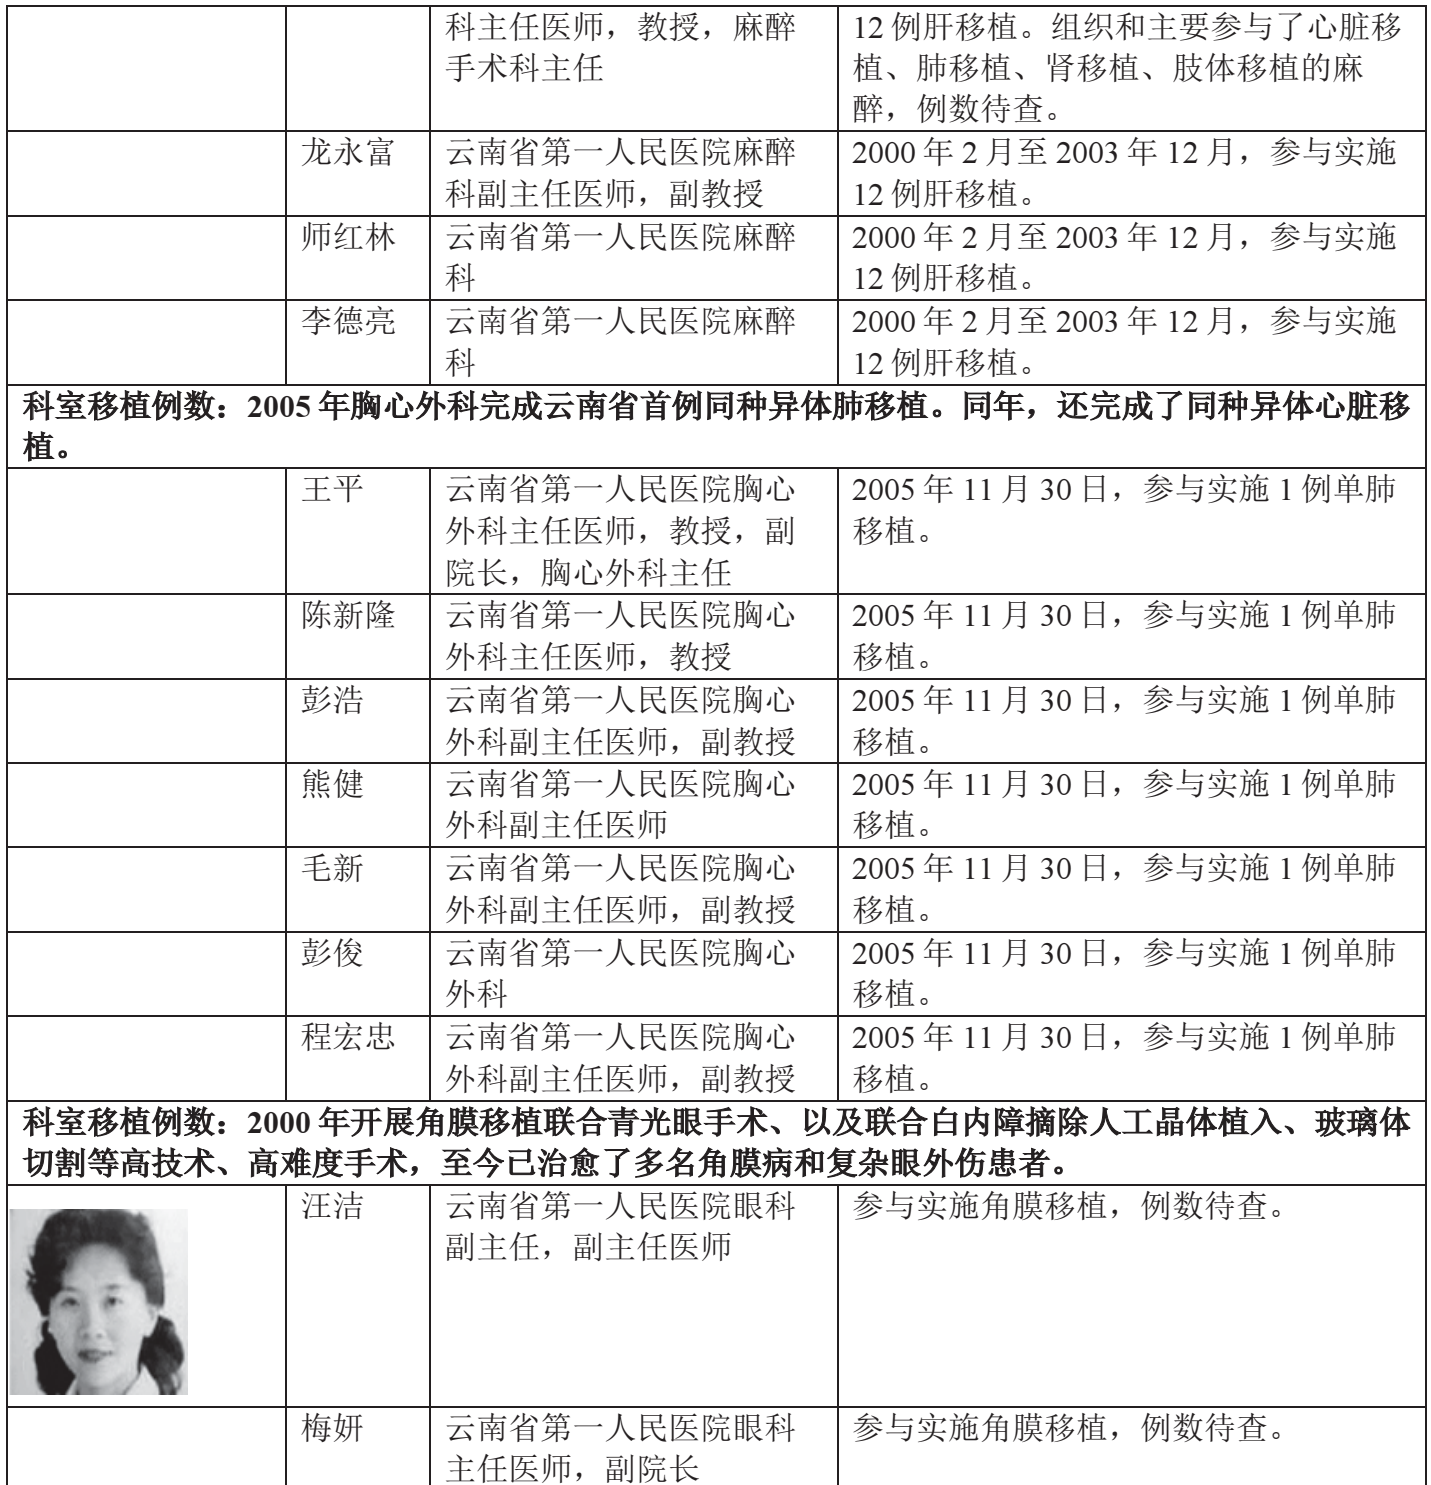 科主任医师，教授，麻醉
手术科主任
12 例肝移植。组织和主要参与了心脏移
植、肺移植、肾移植、肢体移植的麻
醉，例数待查。
龙永富
云南省第一人民医院麻醉
科副主任医师，副教授
2000 年 2 月至 2003 年 12 月，参与实施
12 例肝移植。
师红林
云南省第一人民医院麻醉
科
2000 年 2 月至 2003 年 12 月，参与实施
12 例肝移植。
李德亮
云南省第一人民医院麻醉
科
2000 年 2 月至 2003 年 12 月，参与实施
12 例肝移植。
科室移植例数：2005 年胸心外科完成云南省首例同种异体肺移植。同年，还完成了同种异体心脏移
植。
王平
云南省第一人民医院胸心
外科主任医师，教授，副
院长，胸心外科主任
2005 年 11 月 30 日，参与实施 1 例单肺
移植。
陈新隆
云南省第一人民医院胸心
外科主任医师，教授
2005 年 11 月 30 日，参与实施 1 例单肺
移植。
彭浩
云南省第一人民医院胸心
外科副主任医师，副教授
2005 年 11 月 30 日，参与实施 1 例单肺
移植。
熊健
云南省第一人民医院胸心
外科副主任医师
2005 年 11 月 30 日，参与实施 1 例单肺
移植。
毛新
云南省第一人民医院胸心
外科副主任医师，副教授
2005 年 11 月 30 日，参与实施 1 例单肺
移植。
彭俊
云南省第一人民医院胸心
外科
2005 年 11 月 30 日，参与实施 1 例单肺
移植。
程宏忠
云南省第一人民医院胸心
外科副主任医师，副教授
2005 年 11 月 30 日，参与实施 1 例单肺
移植。
科室移植例数：2000 年开展角膜移植联合青光眼手术、以及联合白内障摘除人工晶体植入、玻璃体
切割等高技术、高难度手术，至今已治愈了多名角膜病和复杂眼外伤患者。
汪洁
云南省第一人民医院眼科
副主任，副主任医师
参与实施角膜移植，例数待查。
梅妍
云南省第一人民医院眼科
主任医师，副院长
参与实施角膜移植，例数待查。